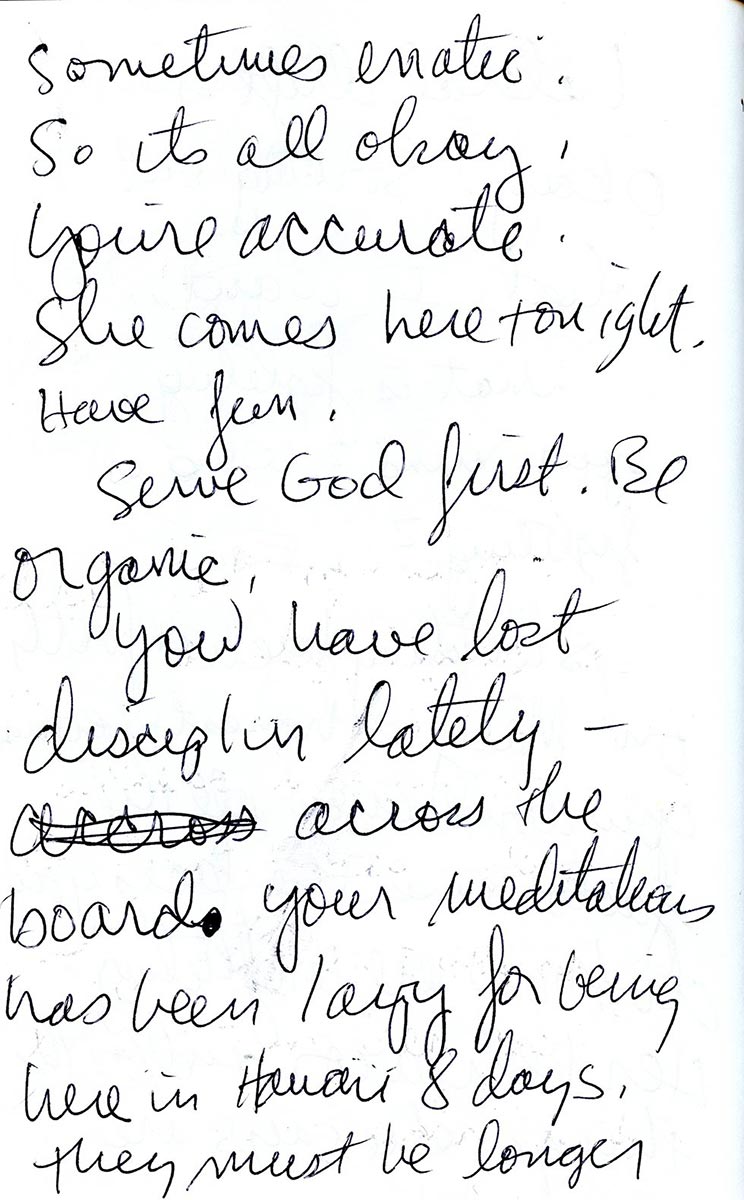 sometimes erratic.
So its all okay,
you're accurate.
She comes here tonight.
Have fun.
Serve God first. Be
organic,
you have lost
disciplin lately —
across across the
board. your meditations
has been lazy for being
here in Hawaii 8 days.
they must be longer